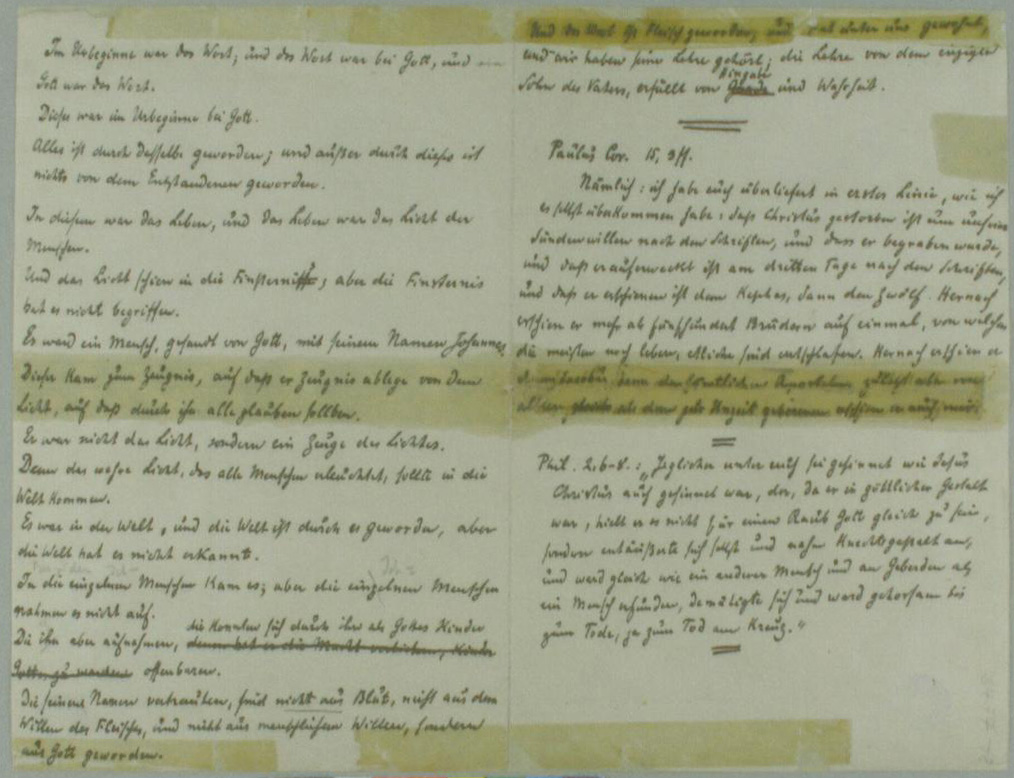 Im Urbeginne war das Wort; und das Wort war bei Gott, und ein
Gott war das Wort.
Dieses war im Urbeginne bei Gott.
Alles ist durch dasselbe geworden; und außer durch dieses ist
nichts von dem Entstandenen geworden.
In diesem war das Leben, und das Leben war das Licht der
Menschen.
Und das Licht schien in die Finsternis; aber die Finsternis
hat es nicht begriffen.
Es ward ein Mensch, gesandt von Gott, mit seinem Namen Johannes.
Dieser kam zum Zeugnis, auf daß er Zeugnis ablege von dem
Licht, auf daß durch ihn alle glauben sollten.
Er war nicht das Licht, sondern ein Zeuge des Lichtes.
Denn das wahre Licht, das alle Menschen erleuchtet, sollte in die
Welt kommen.
Es war in der Welt, und die Welt ist durch es geworden, aber
die Welt hat es nicht erkannt.
Ich=
In die einzelnen Menschen kam es; aber die einzelnen Menschen
nahmen es nicht auf.
die konnten sich durch ihn als Gottes Kinder
Die ihn aber aufnahmen, denen hat er die Macht verliehen, Kinder
Gottes zu werden offenbaren.
Die seinem Namen vertrauten, sind nicht aus Blut, nicht aus dem
Willen des Fleisches, und nicht aus menschlichem Willen, sondern
aus Gott geworden.
Und das Wort ist Fleisch geworden, und hat unter uns gewohnt,
und wir haben seine Lehre gehört; die Lehre von dem einzigen
Hingabe
Sohn des Vaters, erfüllt von Gnade und Wahrheit.
Paulus Cor. 15, 3ff.
Nämlich: ich habe euch überliefert in erster Linie, wie ich
es selbst überkommen habe: daß Christus gestorben ist um unserer
Sünden willen nach den Schriften, und dass er begraben wurde,
und daß er auferweckt ist am dritten Tage nach den Schriften,
und daß er erschienen ist dem Kephas, dann den Zwölf. Hernach
erschien er mehr als fünfhundert Brüdern auf einmal, von welchen
die meisten noch leben, etliche sind entschlafen. Hernach erschien er
dem Jacobus, dann den sämtlichen Aposteln, zuletzt aber von
allen, gleichs als dem zur Unzeit geborenen erschien er auch mir.
Phil. 2,6-8.: „Jeglicher unter euch sei gesinnet wie Jesus
Christus auch gesinnet war, der, da er in göttlicher Gestalt
war, hielt er es nicht für einen Raub Gott gleich zu sein,
sondern entäußerte sich selbst und nahm Knechtsgestalt an,
und ward gleich wie ein anderer Mensch und an Geberden als
ein Mensch erfunden, demütigte sich und ward gehorsam bis
zum Tode, ja zum Tod am Kreuz."